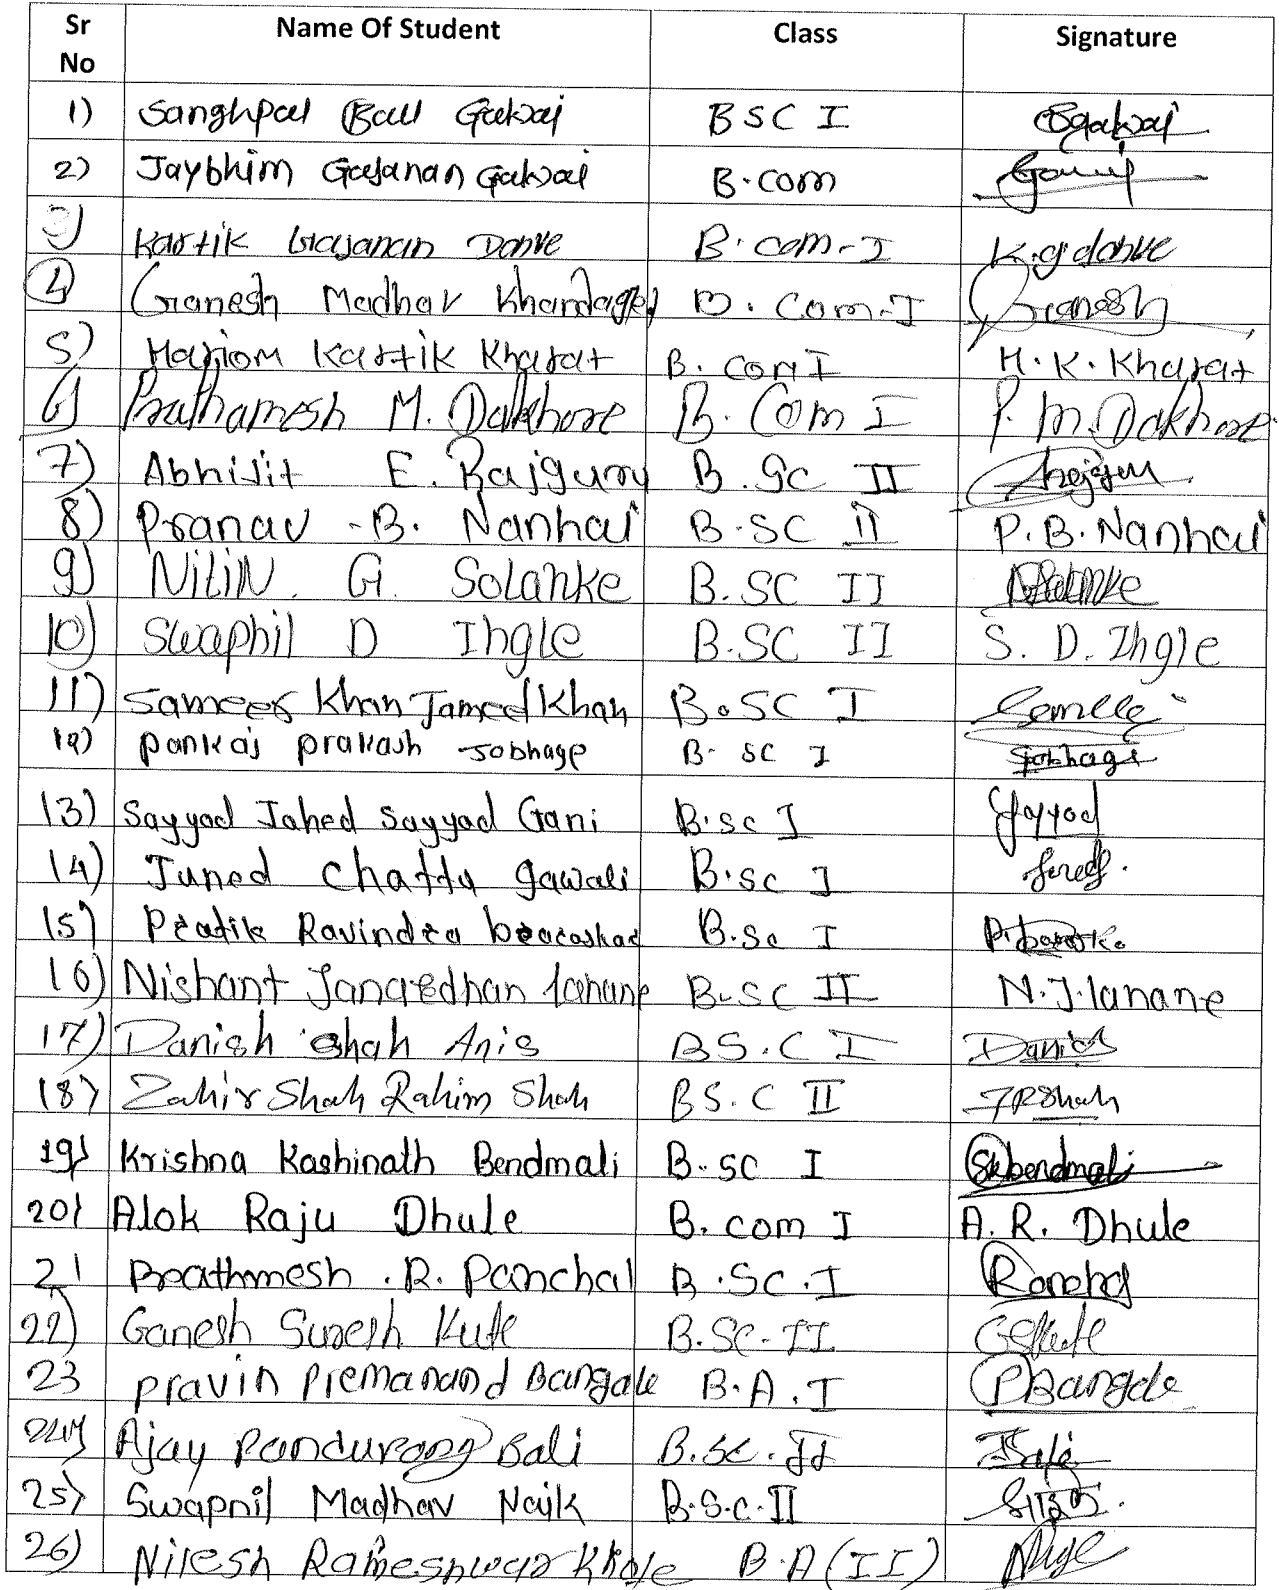 Sr No Name Of Student Class Signature
1) Sanghpal Bali Gakvai BSC I
2) Jaybhim Gajanan Gakvai B.com
3) Kartik Gajanan Donve B.com-I K.g donve
4) Ganesh Madhav Khandagle B.Com-I Ganesh
5) Hariom Kartik Kharat B.com I H.K.Kharat
6) Prathamesh M. Dakhore B.Com I P.M.Dakhore
7) Abhijit E. Rajguru B.Sc II
8) Pranav B. Nanhai B.SC II P.B.Nanhai
9) NitiN. G. Solanke B.SC II
10) Swaphil D Ihgle B.SC II S. D. Ihgle
11) Sameer Khan Jameel Khan B.SC I
12) Pankaj prakash Jobhage B.sc I
13) Sayyad Jahed Sayyad Gani B.sc I Sayyad
14) Juned Chattu gawali B.sc I
15) Pratik Ravindra B.Sc I
16) Nishant Janardhan lahane B.SC II N.J.lahane
17) Danish shah Anis BS.C I Danish
18) Zahir Shah Rahim Shah BS.C II ZRShah
19) Krishna Kashinath Bendmali B.sc I Skbendmali
20) Alok Raju Dhule B.com I A.R. Dhule
21 Prathmesh .R. Panchal B.SC.I
22) Ganesh Suresh Kute B.SC-II GSKute
23 Pravin Premanand Bangale B.A.I PBangale
24) Ajay Pandurang Bali B.Sc.II
25) Swapnil Madhav Naik B.S.c.II
26) Nilesh Rameshwar Khole B.A (II)